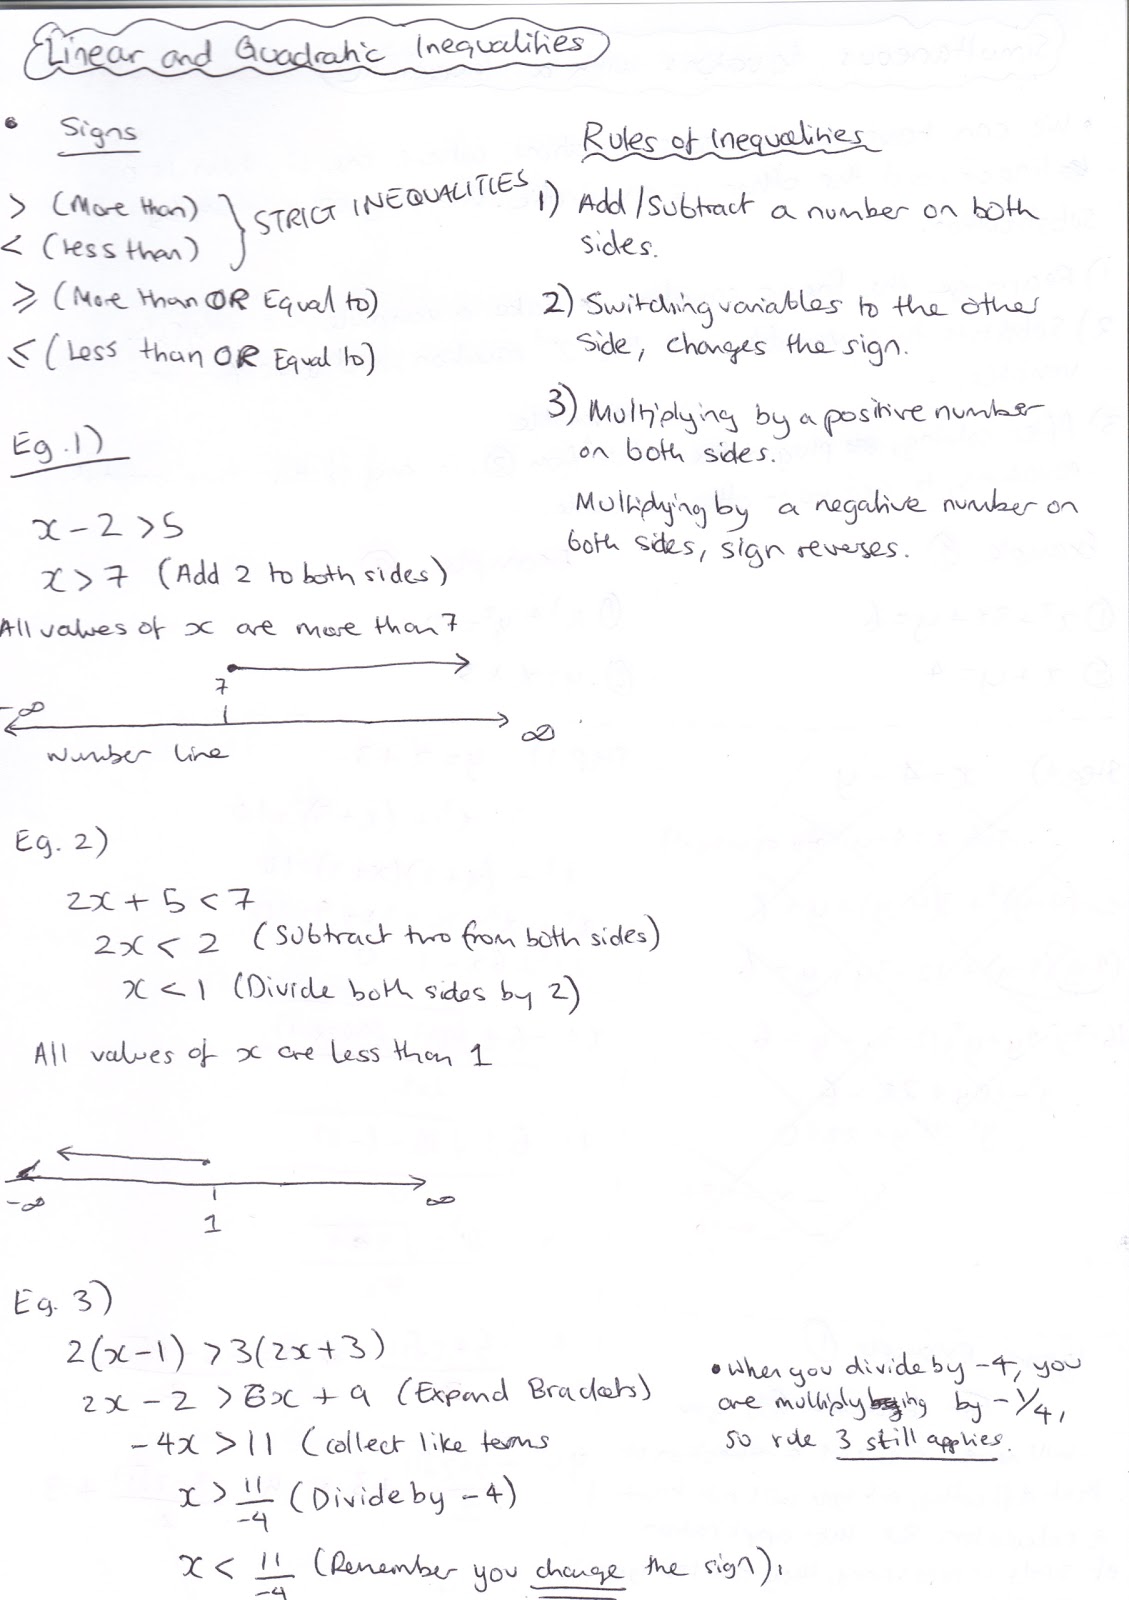 Linear and Quadratic Inequalities
• Signs
> (More than)
< (less than)
STRICT INEQUALITIES
≥ (More than OR Equal to)
≤ (Less than OR Equal to)
Rules of Inequalities
1) Add/Subtract a number on both
sides.
2) Switching variables to the other
side, changes the sign.
3) Multiplying by a positive number
on both sides.
Multiplying by a negative number on
both sides, sign reverses.
Eg.1)
x - 2 > 5
x > 7 (Add 2 to both sides)
All values of x are more than 7
7
-∞
∞
Number line
Eg. 2)
2x + 5 < 7
2x < 2 (Subtract two from both sides)
x < 1 (Divide both sides by 2)
All values of x are less than 1
-∞
∞
1
Eg. 3)
2(x-1) > 3(2x+3)
2x - 2 > 6x + 9 (Expand Brackets)
-4x > 11 (collect like terms
x > 11/-4 (Divide by -4)
x < 11/-4 (Remember you change the sign).
• When you divide by -4, you
are multiplying by -1/4,
so rule 3 still applies.